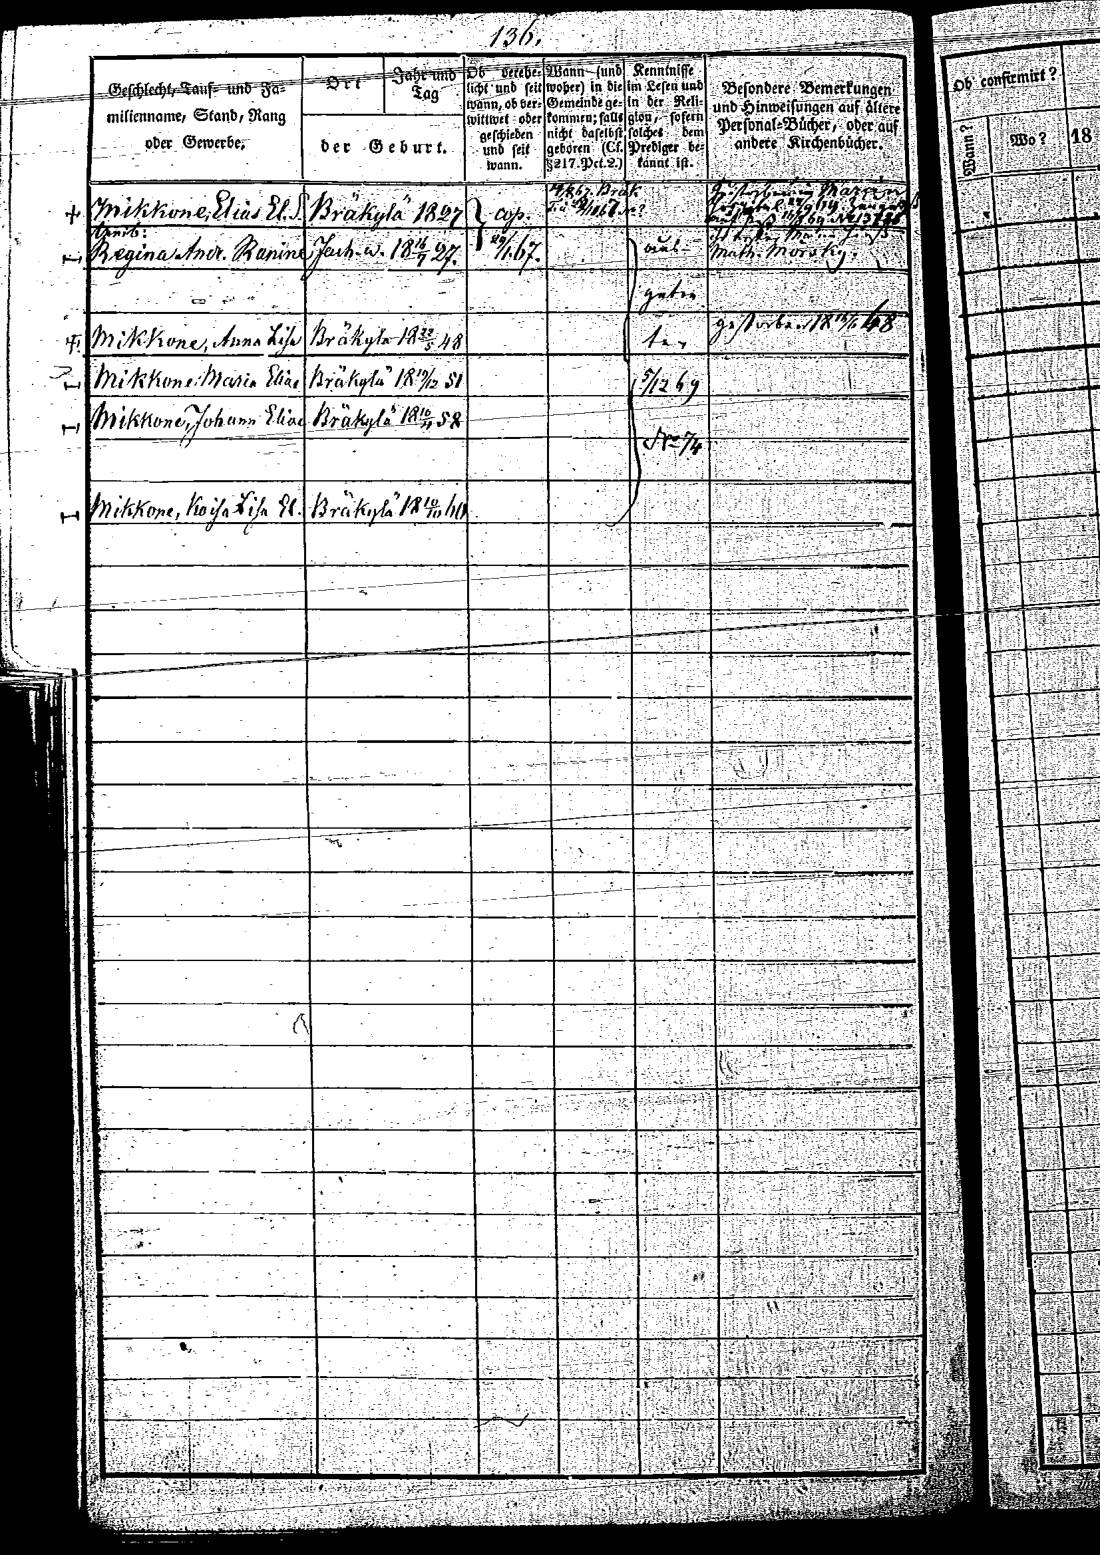 136.
Geschlecht, Tauf- und Fa-
milienname, Stand, Rang
oder Gewerbe.
Ort
Jahr und
Tag
der Geburt.
Ob verehe-
licht und seit
wann, ob ver-
wittwet oder
geschieden
und seit
wann.
Wann (und
woher) in die
Gemeinde ge-
kommen; falls
nicht daselbst
geboren (Cf.
§ 217. Pct. 2.)
Kenntnisse
im Lesen und
in der Reli-
gion, sofern
solches dem
Prediger be-
kannt ist.
Besondere Bemerkungen
und Hinweisungen auf ältere
Personal-Bücher, oder auf
andere Kirchenbücher.
Ob confirmirt?
Wann?
Wo?
18
Mikkone, Elias El. S. Bräkylä 1827 cop.
Weib:
Regina Andr. Ranine 18 16/7 27. 29/1 67.
Math. Morsky.
Mikkone, Anna Lisa Bräkylä 18 22/5 48 gestorben
Mikkone Maria Eliae Bräkylä 18 19/12 51 5/12 69
Mikkone, Johann Eliae Bräkylä 18 10/4 58
No 74
Mikkone, Kaisa Lisa El. Bräkylä 18 10/10 60